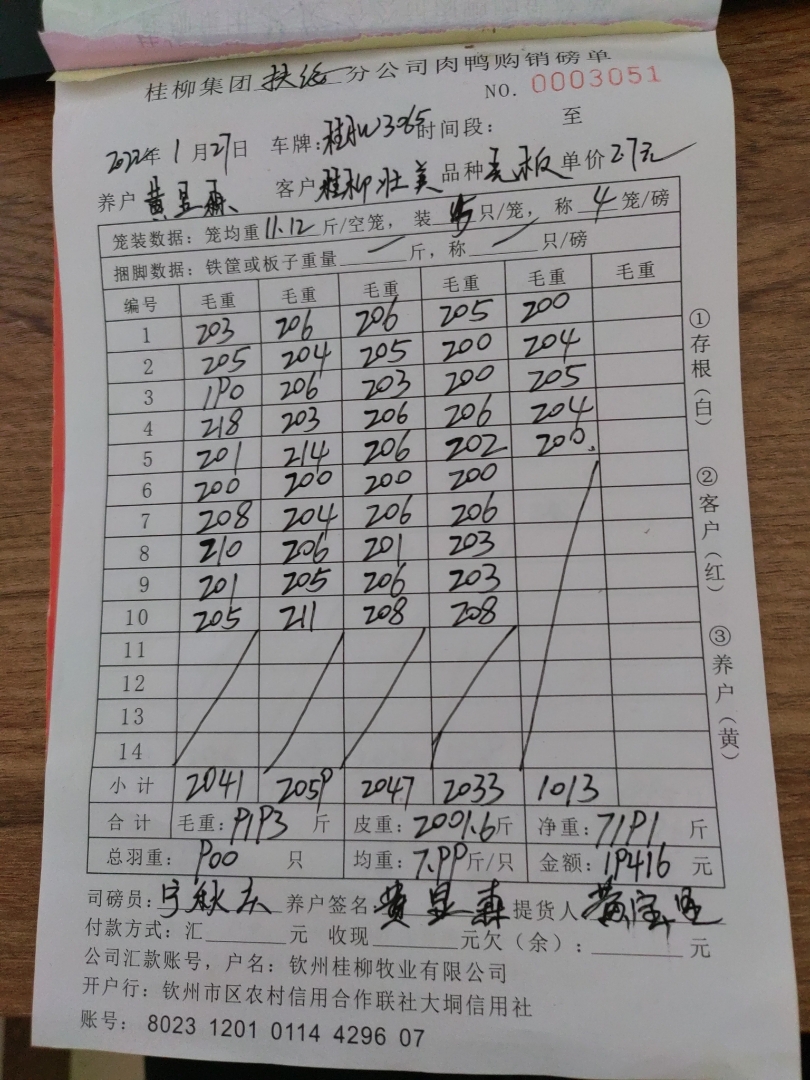 桂柳集团扶绥分公司肉鸭购销磅单
NO. 0003051
2022年1月27日 车牌:桂AW3065时间段: 至
养户 黄显森 客户 桂柳壮美 品种 毛板 单价 27元
笼装数据:笼均重11.12斤/空笼,装 5只/笼,称 4 笼/磅
捆脚数据:铁筐或板子重量 一 斤,称 一 只/磅
编号 毛重 毛重 毛重 毛重 毛重 毛重
1 203 206 206 205 200
2 205 204 205 200 204
3 190 206 203 200 205
4 218 203 206 206 204
5 201 214 206 202 200
6 200 200 200 200
7 208 204 206 206
8 210 206 201 203
9 201 205 206 203
10 205 211 208 208
11
12
13
14
小计 2041 2059 2047 2033 1013
合计 毛重:9193 斤 皮重:2001.6斤 净重:7191 斤
总羽重: 900 只 均重:7.99斤/只 金额:19416 元
司磅员: 宁秋庆 养户签名 黄显森 提货人
付款方式:汇 元 收现 元欠(余): 元
公司汇款账号,户名:钦州桂柳牧业有限公司
开户行:钦州市区农村信用合作联社大垌信用社
账号: 8023 1201 0114 4296 07
①存根(白)
②客户(红)
③养户(黄)